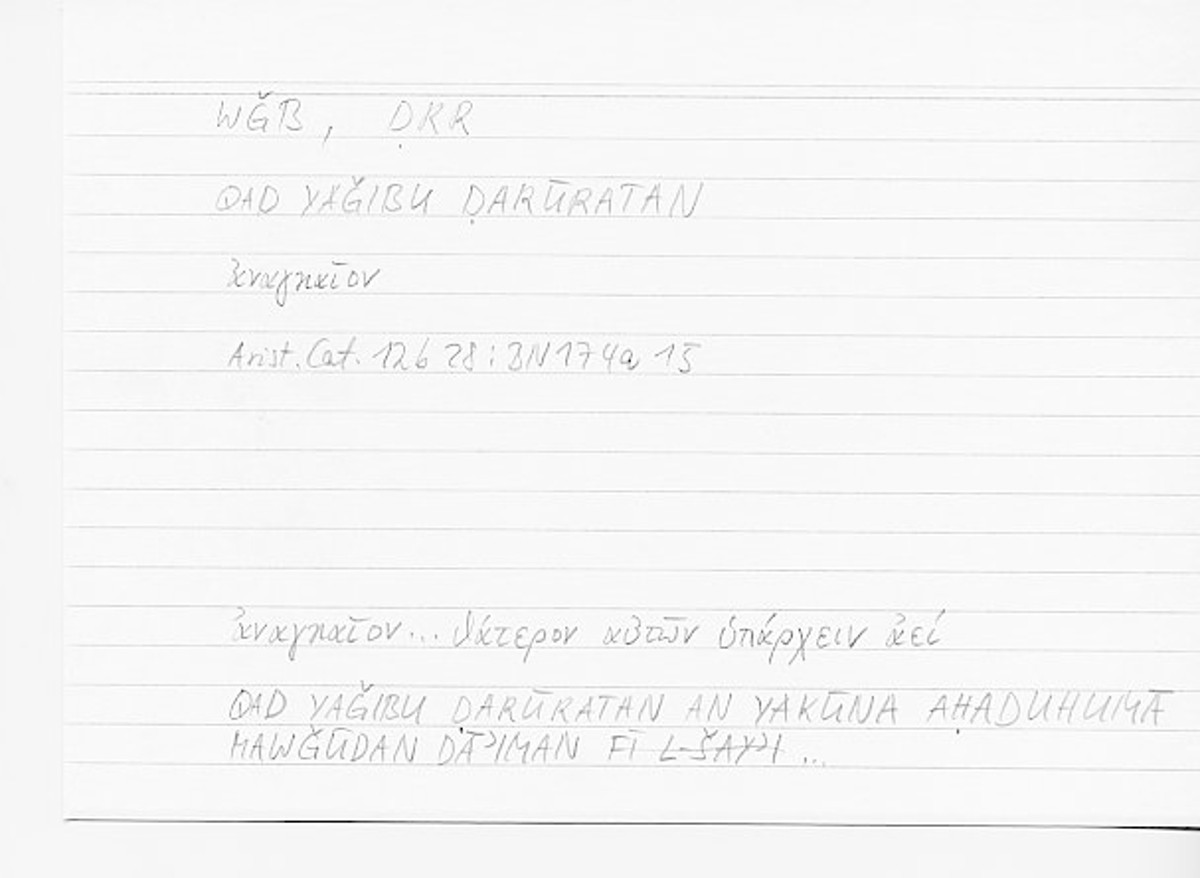 WǦB, ḌRR
QAD YAǦIBU ḌARŪRATAN
ἀναγκαῖον
Arist. Cat. 12b 28 : BN 174a 15
ἀναγκαῖον... θάτερον αὐτῶν ὑπάρχειν ἀεί
QAD YAǦIBU ḌARŪRATAN AN YAKŪNA AḤADUHUMĀ
MAWǦŪDAN DĀʾIMAN FĪ L-ŠAYʾI ...